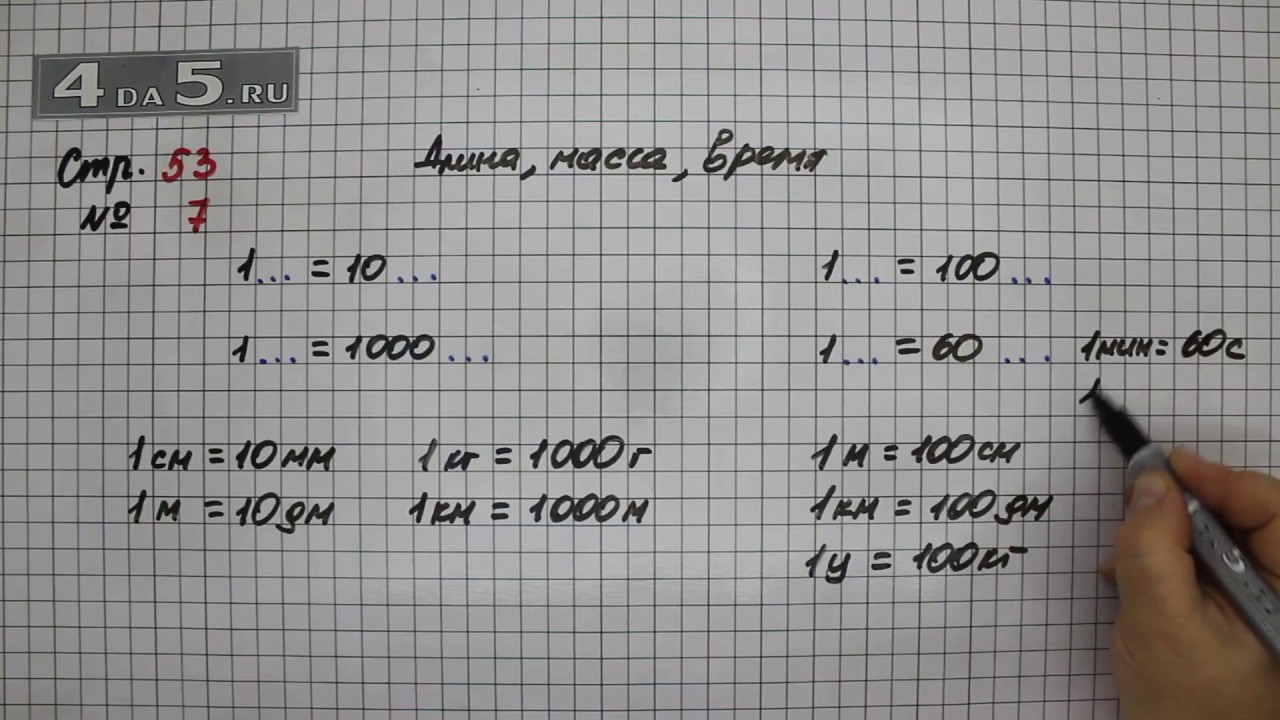 4 DA 5.RU
Стр. 53
№ 7
Длина, масса, время
1... = 10 ...
1... = 100 ...
1... = 1000 ...
1... = 60 ...
1мин = 60с
1
1см = 10мм
1м = 10дм
1кг = 1000г
1км = 1000м
1м = 100см
1км = 100дм
1ц = 100кг